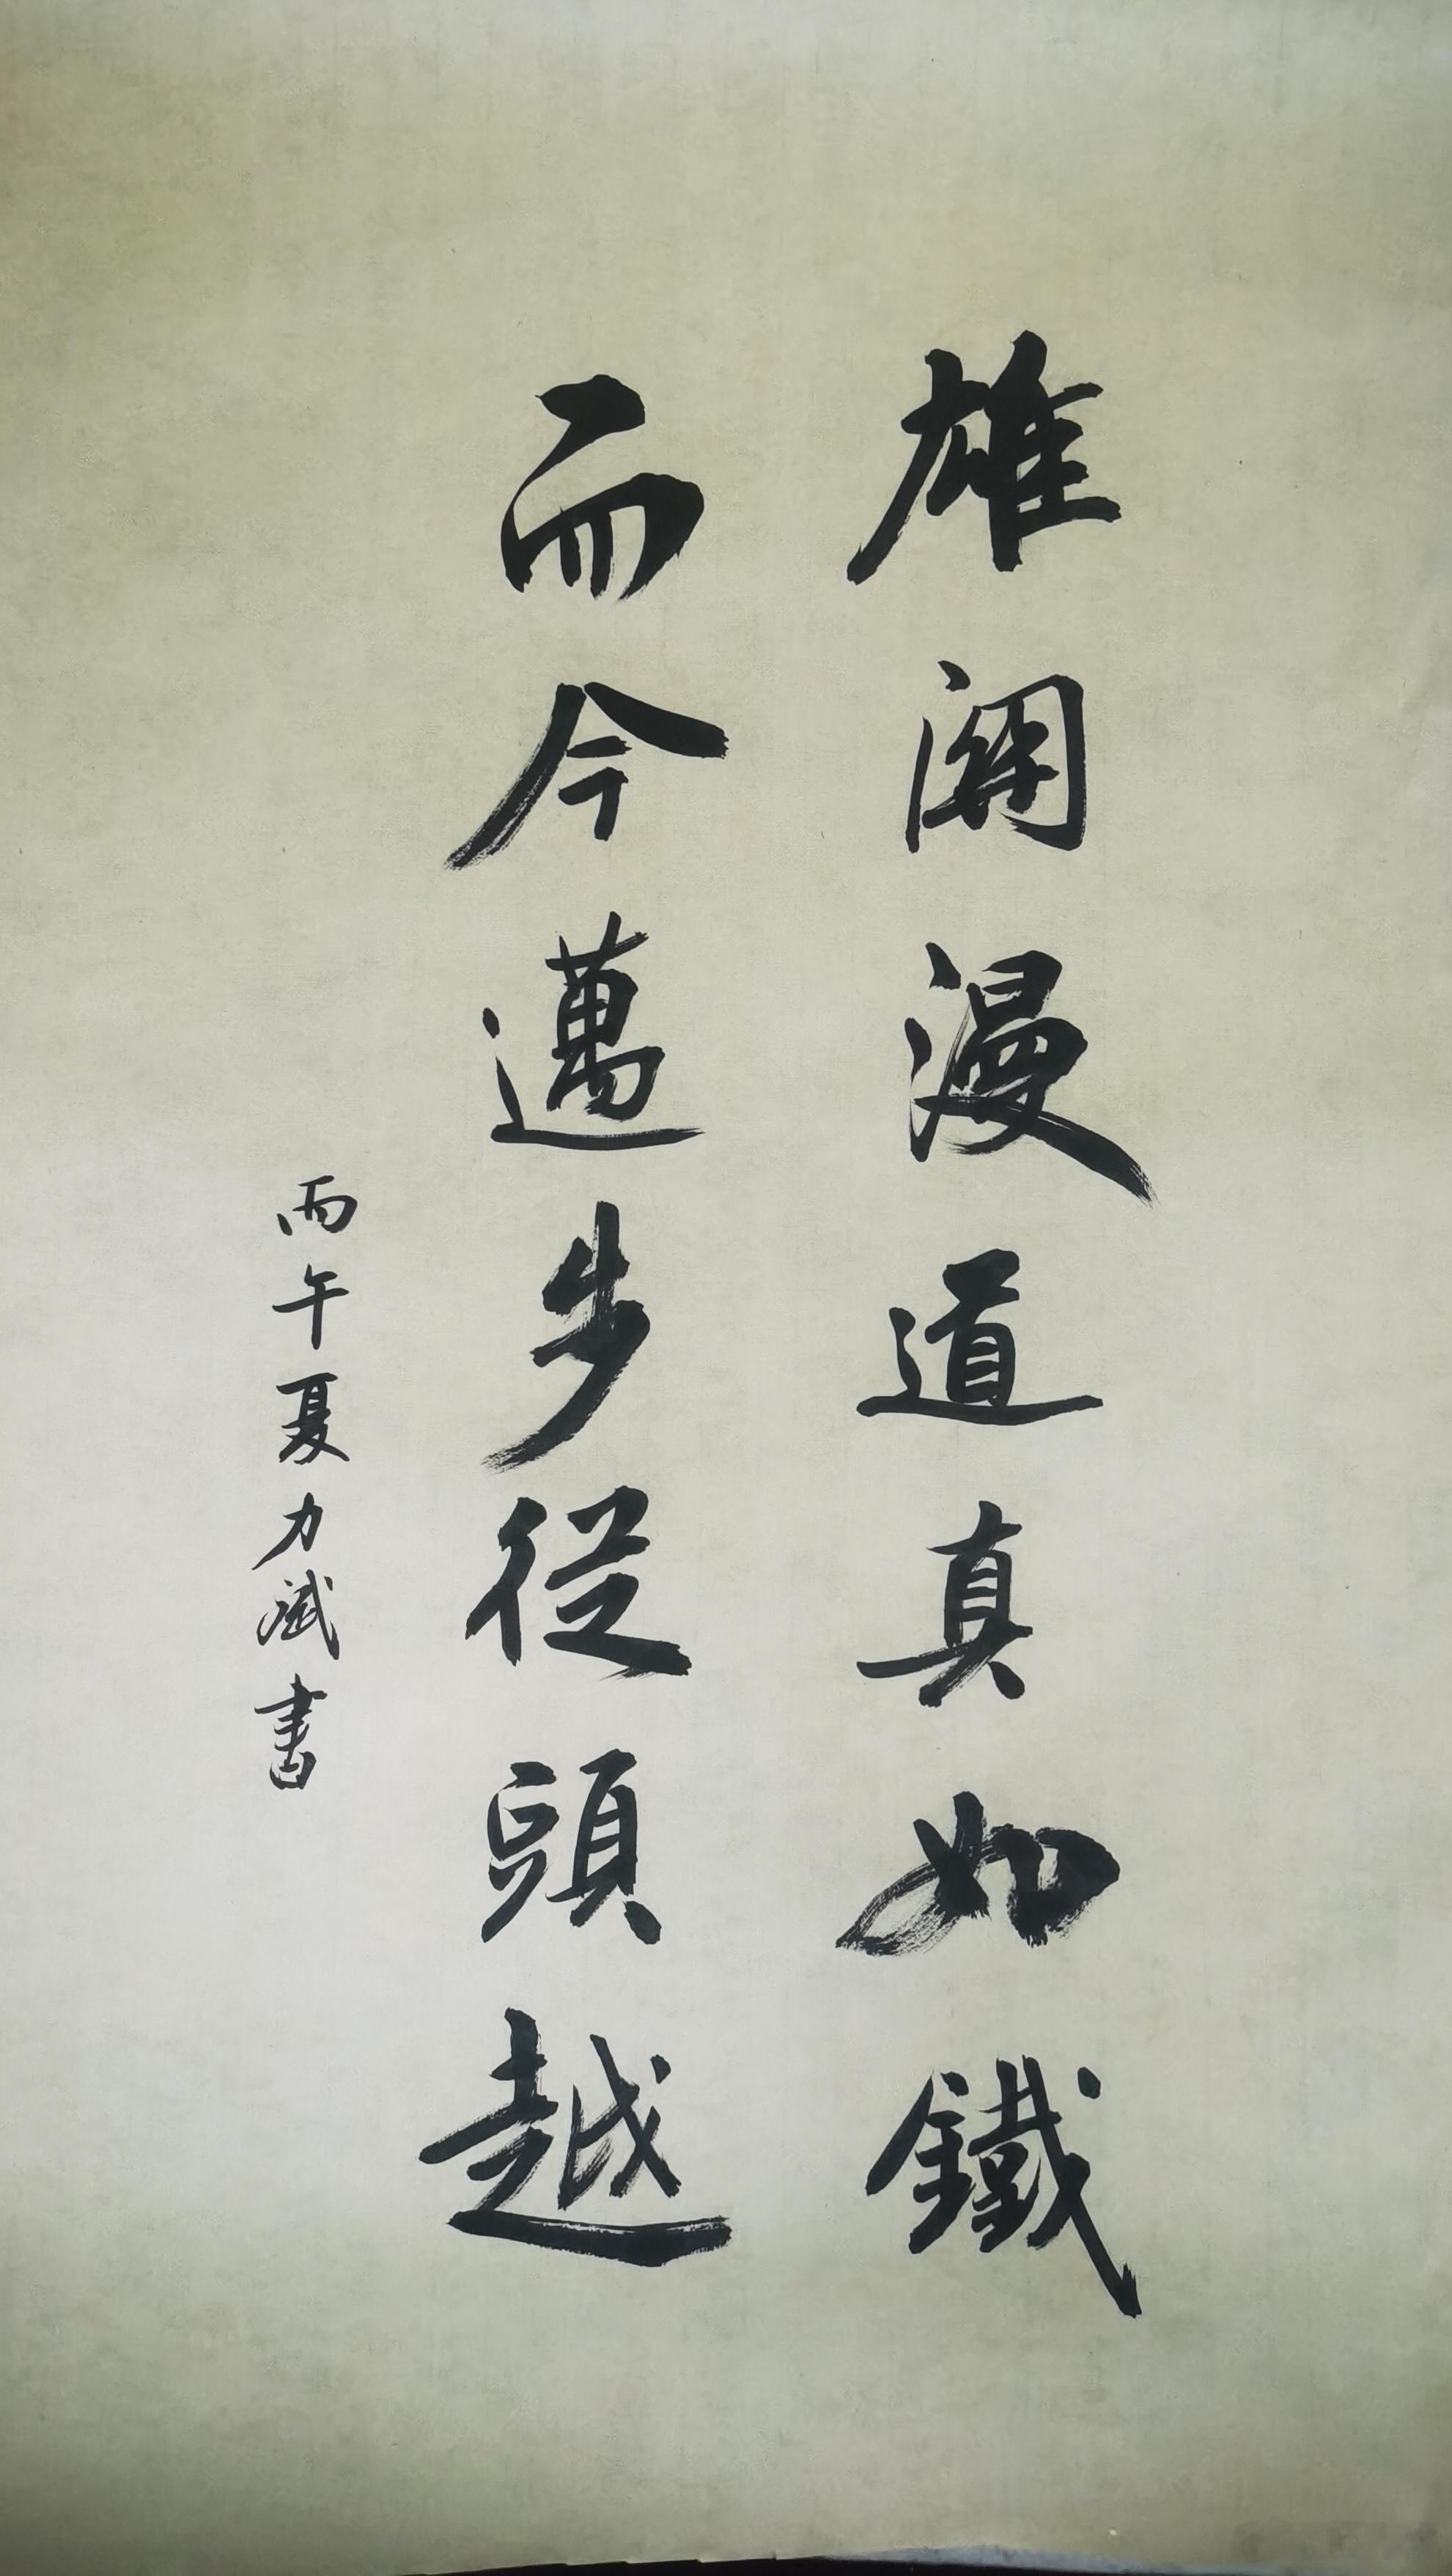 雄関漫道真如鐵
而今邁步從頭越
丙午夏力斌書